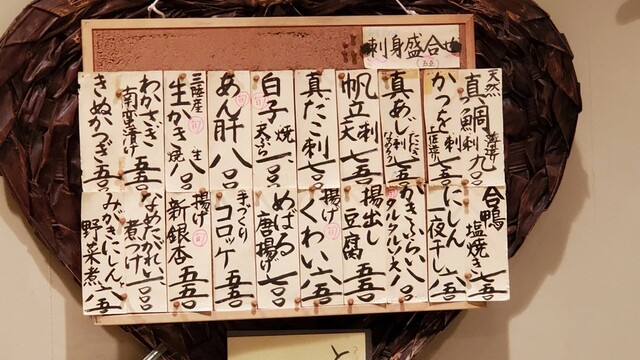 刺身盛合せ
天然
真鯛刺 九〇〇
かつを刺
真あじ刺 七五〇
帆立刺 七五〇
真だこ刺 六五〇
白子 焼 天ぷら 一〇〇〇
旬
あん肝 八〇〇
旬
三陸産
生かき 生 焼 八〇〇
旬
わかさぎ
南蛮漬け 五五〇
きぬかつぎ 五五〇
合鴨
塩焼き 七五〇
にしん
一夜干し 六五〇
かきふらい 八〇〇
タルタルソース
揚出し
豆腐 五五〇
揚げ
旬
くわい 六五〇
めばる
唐揚げ 七五〇
手づくり
コロッケ 五五〇
揚げ
旬
新銀杏 五五〇
なめたがれい
煮つけ 一〇〇〇
みがきにしんと
野菜煮 六五〇
と